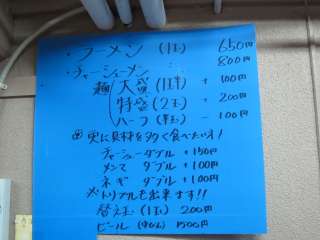 ・ラーメン (1玉) 650円
・チャーシューメン 800円
麺 大盛 (1玉半) + 100円
特盛 (2玉) + 200円
ハーフ (半玉) - 100円
更に具材を多く食べたい方!
チャーシューダブル +150円
メンマ ダブル +100円
ネギ ダブル +100円
※トリプルも出来ます!!
替え玉 (1玉) 200円
ビール (中びん) 500円